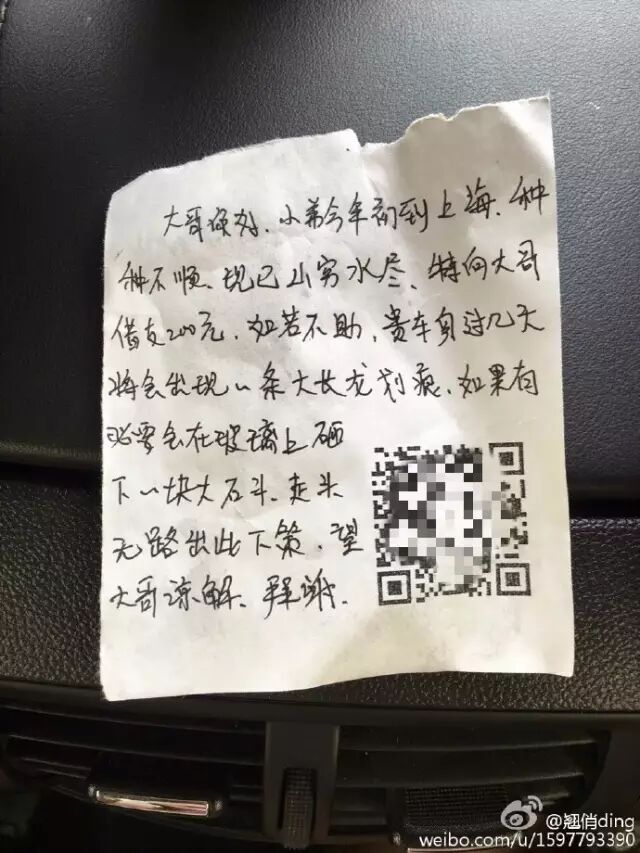 大哥你好、小弟今年初到上海、种
种不顺、现已山穷水尽、特向大哥
借支200元、如若不助、贵车身过几天
将会出现一条大长龙划痕、如果有
必要会在玻璃上砸
下一块大石头、走头
无路出此下策、望
大哥谅解、谢.
@翘俏ding
weibo.com/u/1597793390